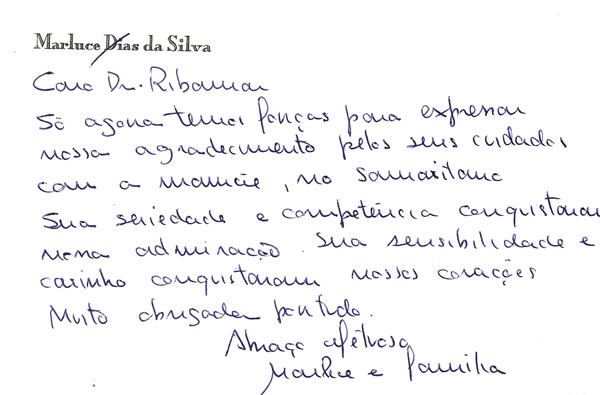 Marluce Dias da Silva
Caro Dr. Ribamar
Só agora temos forças para expressar
nosso agradecimento pelos seus cuidados
com a mamãe, no Samaritano
Sua seriedade e competência conquistaram
nossa admiração. Sua sensibilidade e
carinho conquistaram nossos corações
Muito obrigada por tudo.
Abraço afetuoso
Marluce e família